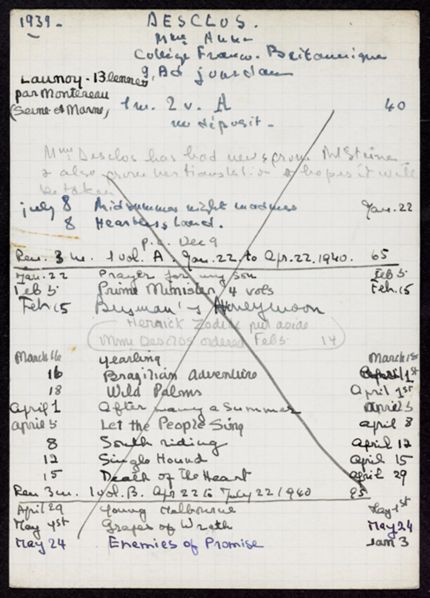 1939. DESCLOS.
Mme Anne
Collège Franco-Britannique
9, Bd Jourdan
Launoy - 13lennes
par Montereau
(Seine et Marne)
1 m. 2 v. A 40
no deposit.
Mme Desclos has had news from Mr Steiner
& also from her translation & hopes it will
be taken
July 8 Midsummer night madness Jan. 22
8 Heartless Land.
P.C. Dec 9
Ren. 3 m. 1 vol. A Jan. 22, to Apr. 22, 1940. 65
Jan. 22 Prayer for my son Feb 5
Feb 5 Prime Minister 4 vols Feb. 15
Feb. 15 Busman's Honeymoon
Herrick Zodiac put aside
Mme Desclos ordered Feb 5 14
March 16 yearling March
16 Brazilian Adventure April 1st
18 Wild Palms April 1st
April 1 After many a Summer April 5
April 5 Let the People Sing April 8
8 South riding April 12
12 Single Hound April 15
15 Death of the Heart April 29
Ren 3 m. 1 vol. B. Apr 22 to July 22 1940 95
April 29 Young Melbourne May 1st
May 1st Grapes of Wrath May 24
May 24 Enemies of Promise 3